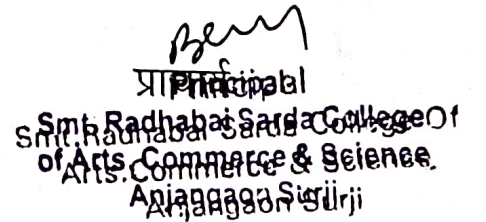 प्राचार्य
Principal
Smt. Radhabai Sarda College
of Arts, Commerce & Science
Anjangaon Surji
Smt. Radhabai Sarda College Of
Arts, Commerce & Science.
Anjangaon Surji